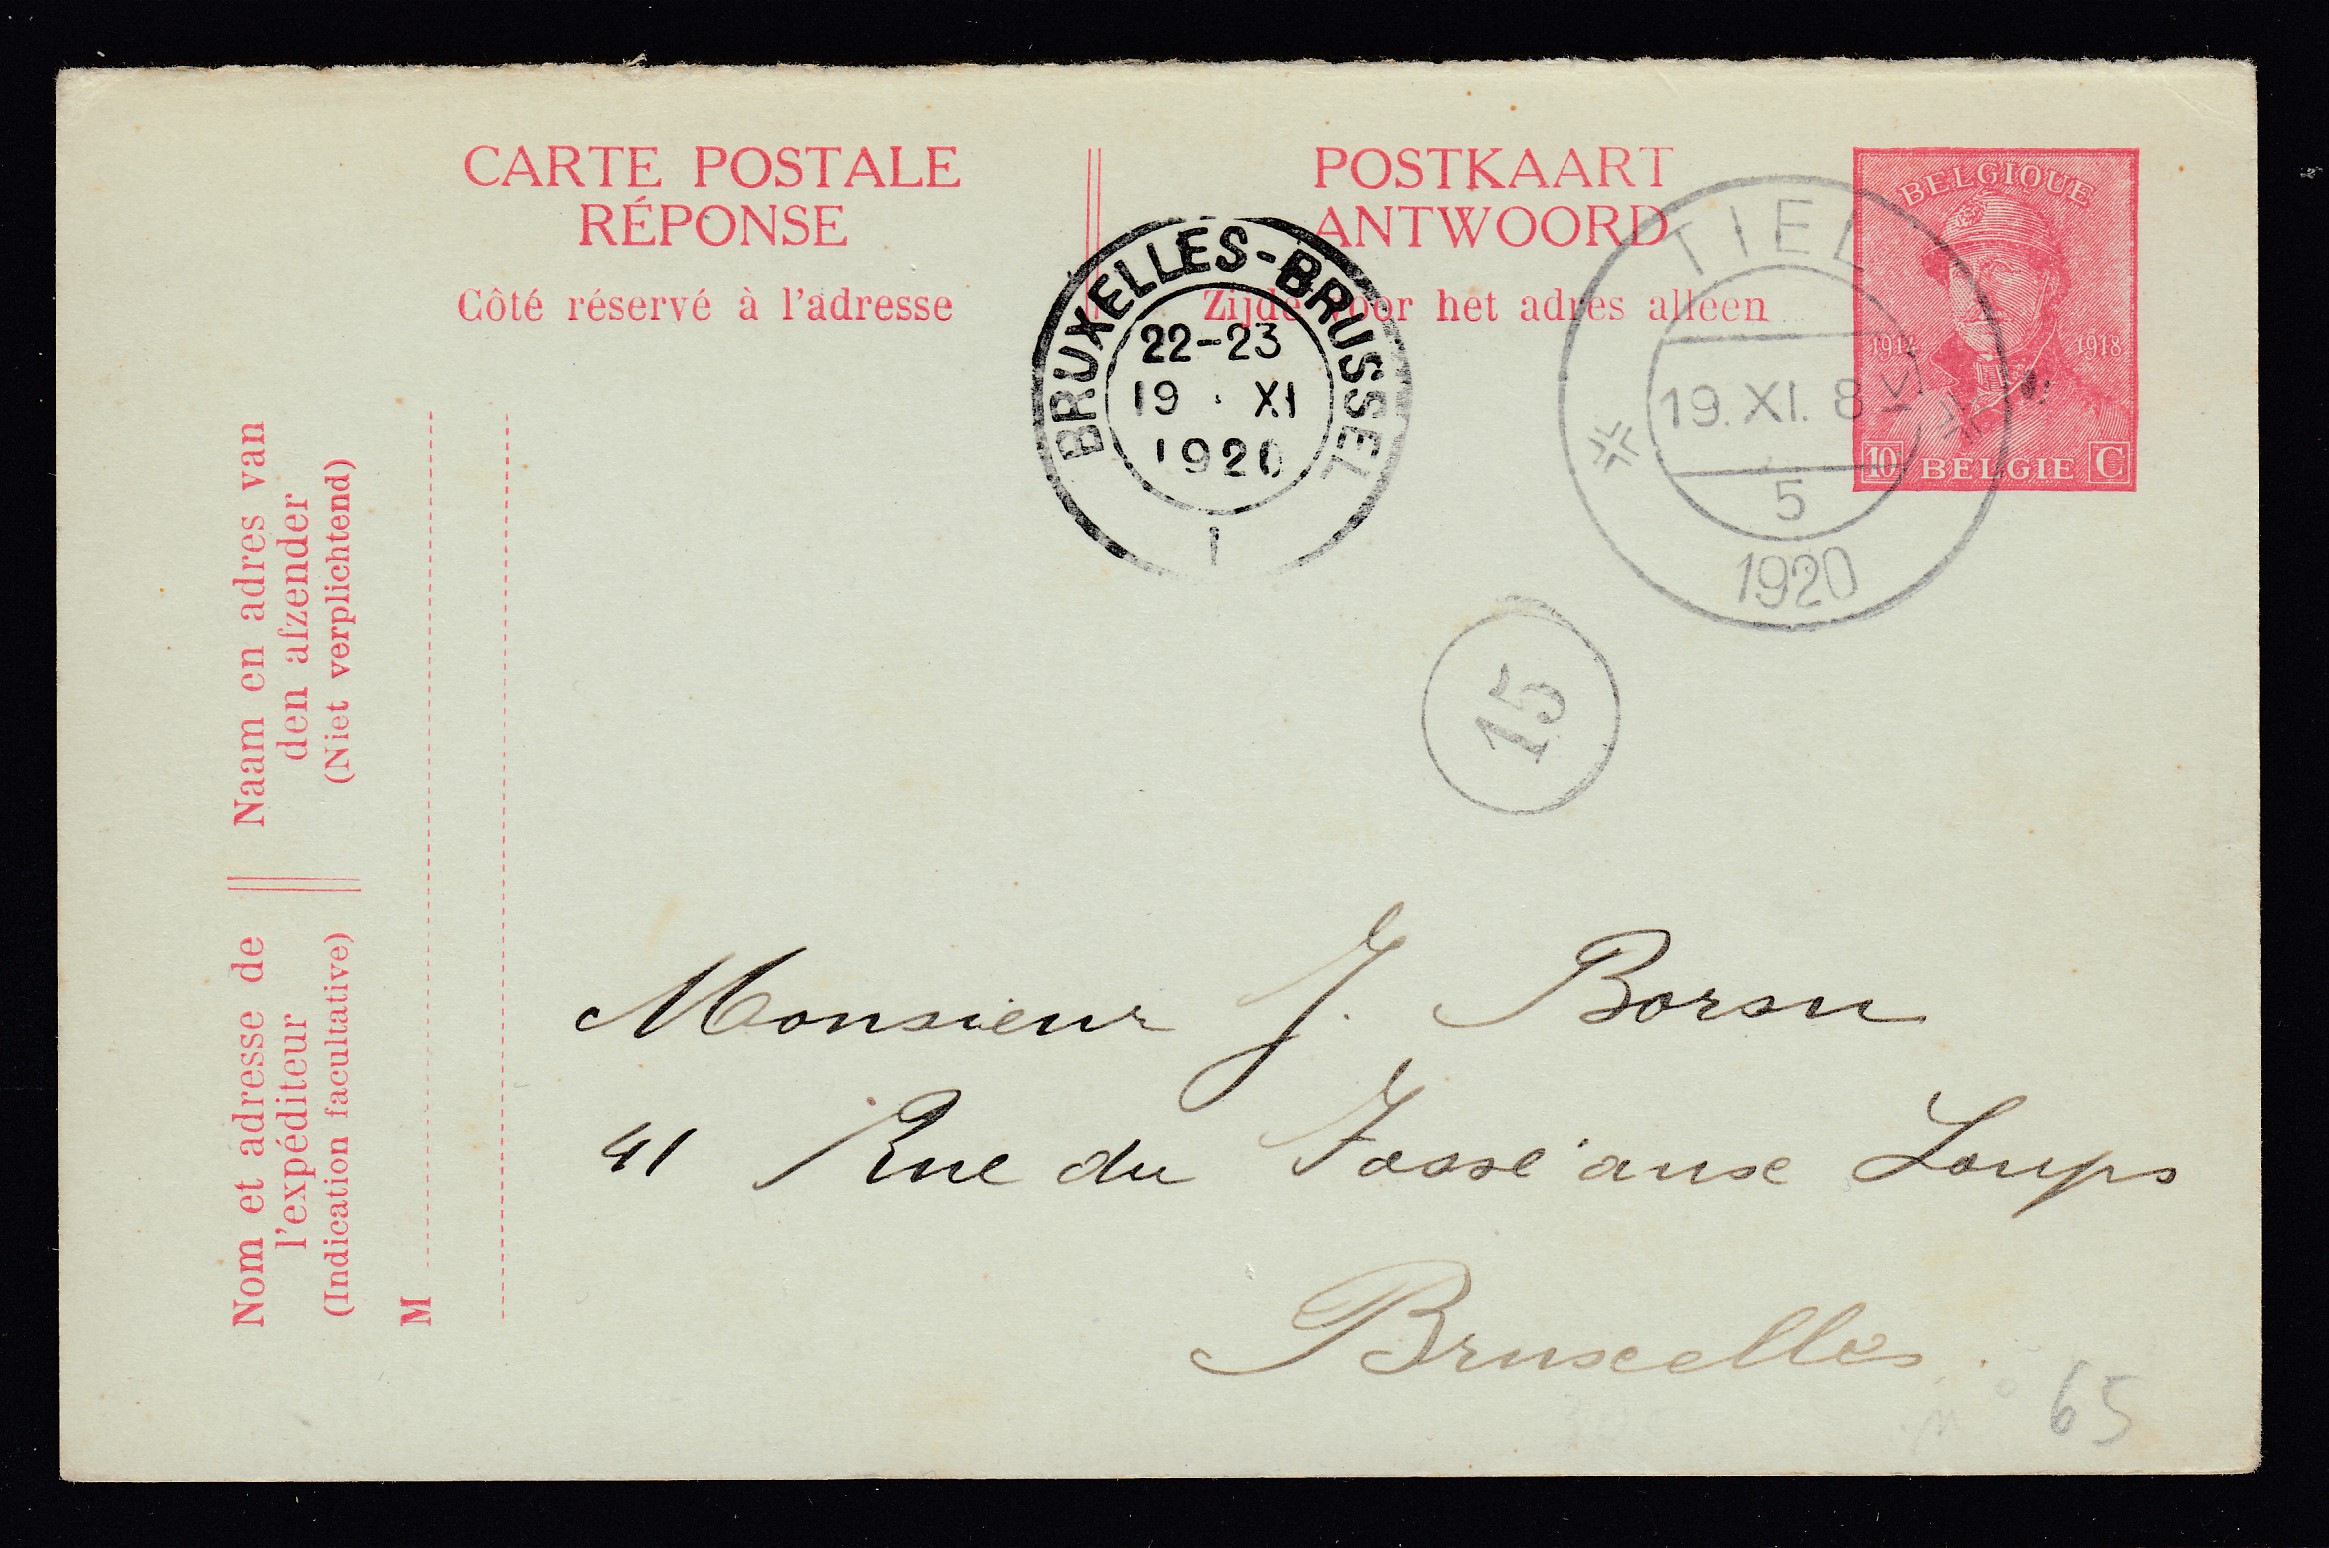 CARTE POSTALE
RÉPONSE
Côté réservé à l'adresse
POSTKAART
ANTWOORD
Zijde voor het adres alleen
BELGIQUE
1914 1918
10 BELGIE C
BRUXELLES-BRUSSEL
22-23
19 · XI
1920
1
TIEL
19. XI. 8 V
5
1920
15
Naam en adres van
den afzender
(Niet verplichtend)
Nom et adresse de
l'expéditeur
(Indication facultative)
M
Monsieur J. Borsu
41 Rue du Fossé aux Loups
Bruxelles.
65